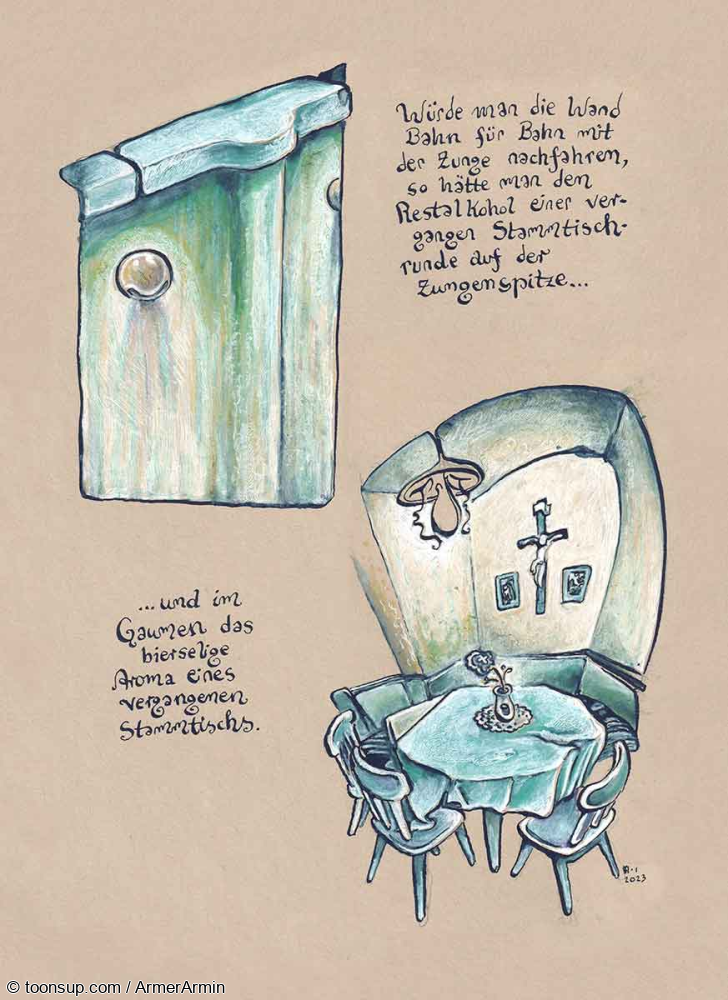 Würde man die Wand
Bahn für Bahn mit
der Zunge nachfahren,
so hätte man den
Restalkohol einer ver-
gangen Stammtisch-
runde auf der
Zungenspitze...
...und im
Gaumen das
bierselige
Aroma eines
vergangenen
Stammtischs.
2023
© toonsup.com / ArmerArmin